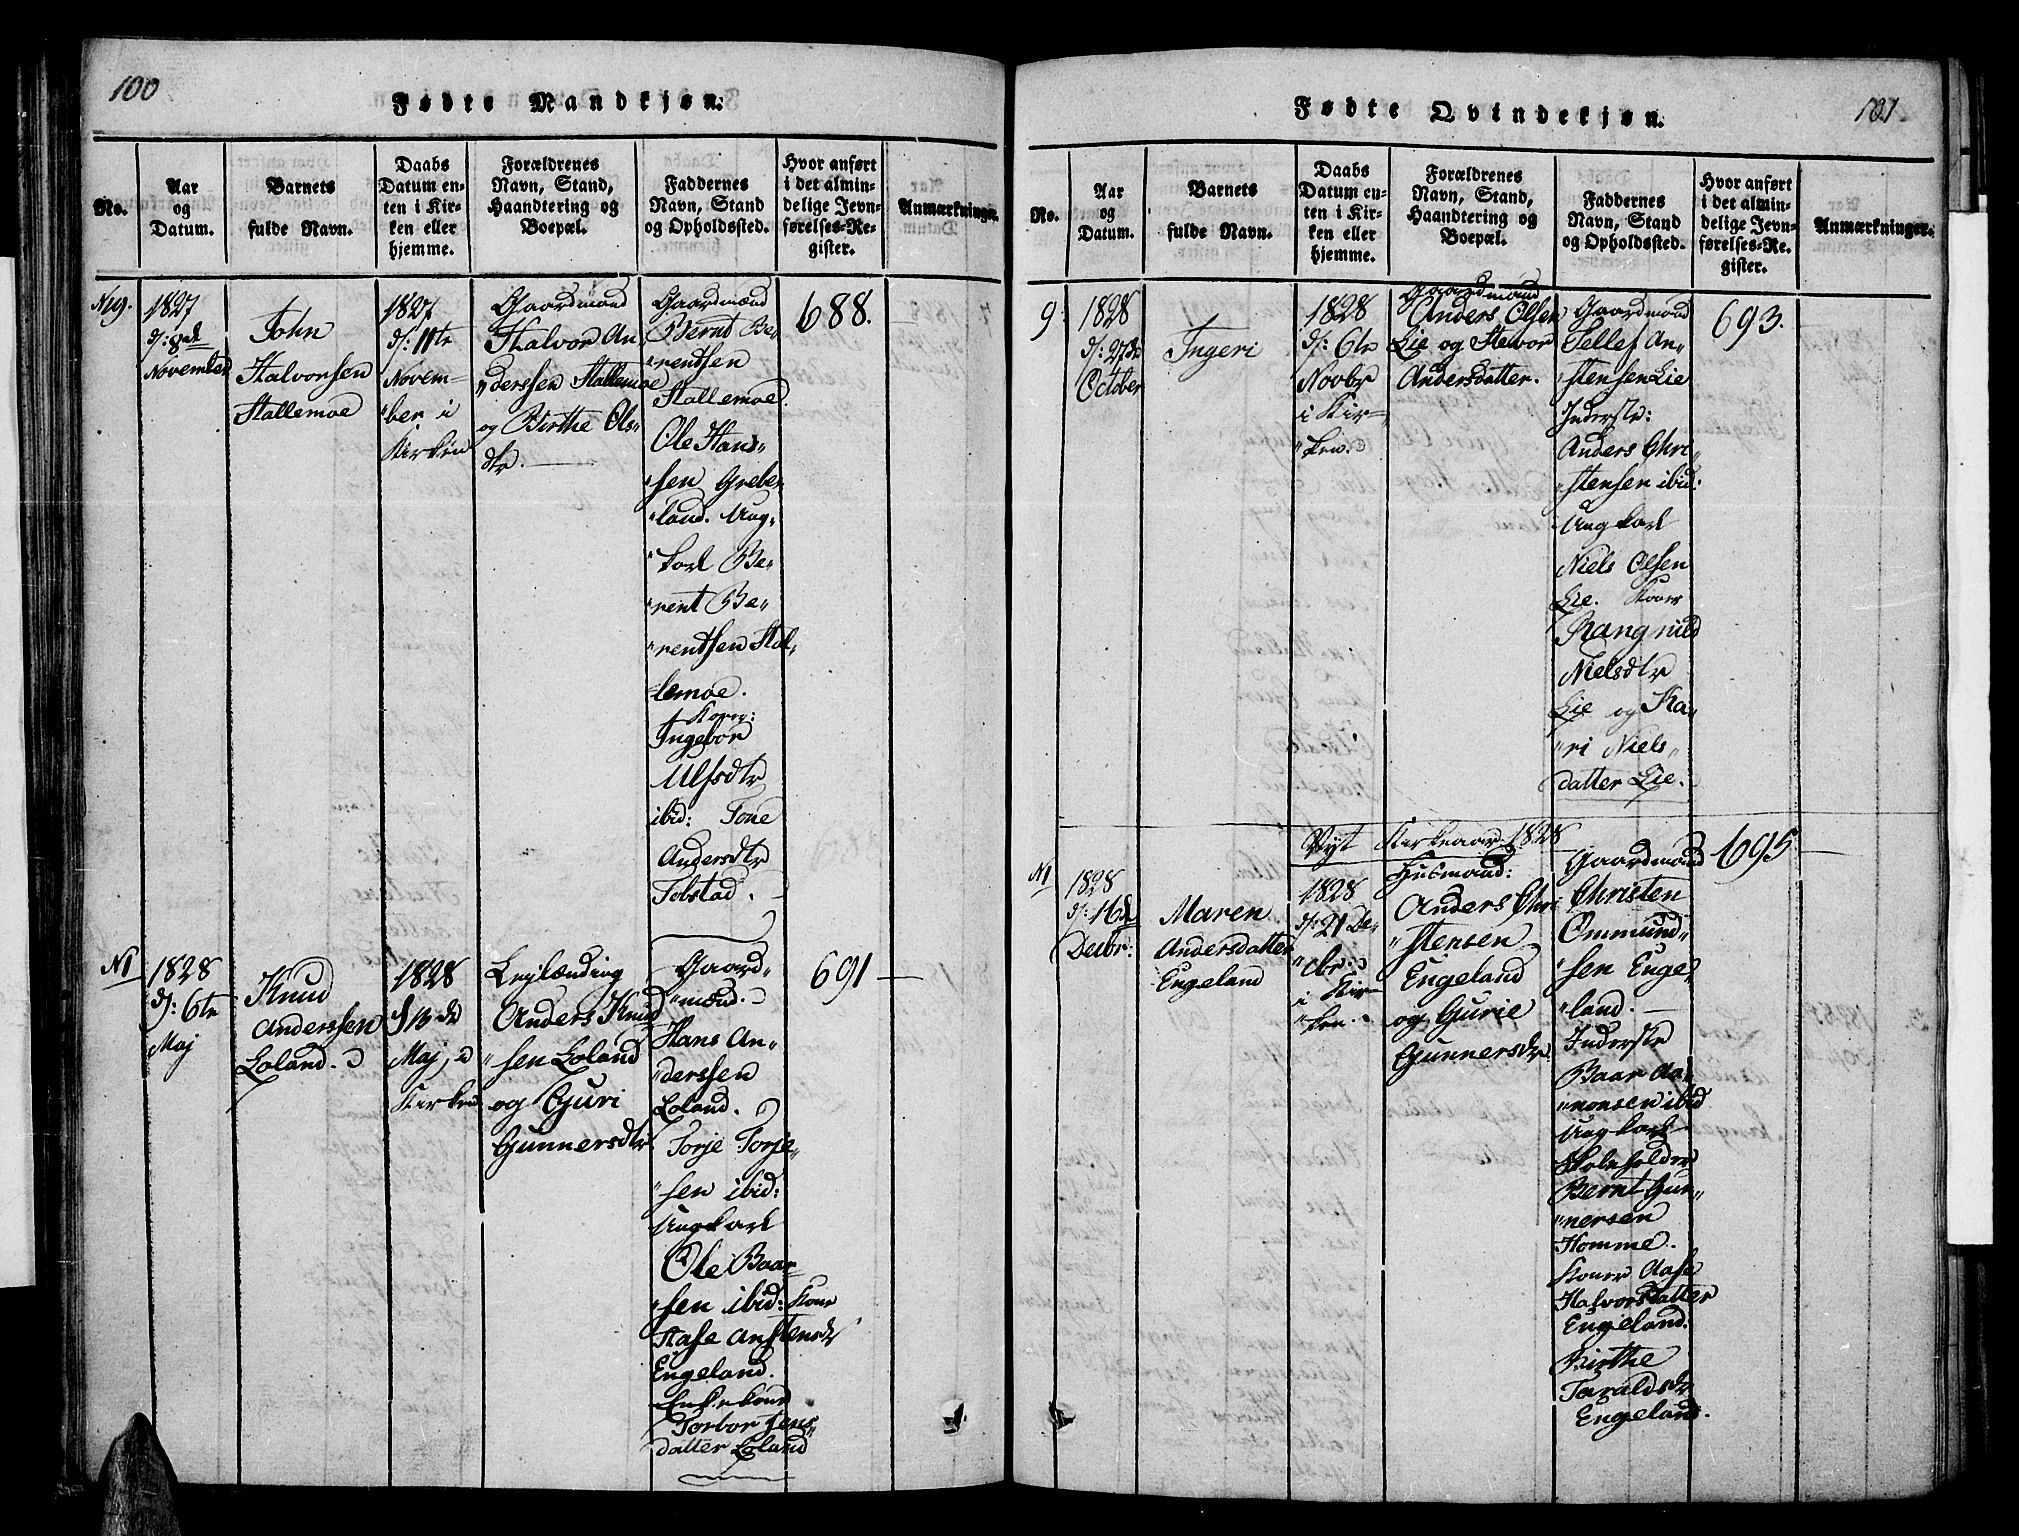 100
Fødte Mandkjøn.
No.
Aar
og
Datum.
Barnets
fulde Navn.
Daabs
Datum en-
ten i Kir-
ken eller
hjemme.
Forældrenes
Navn, Stand,
Haandtering og
Boepæl.
Faddernes
Navn, Stand
og Opholdssted.
Hvor anført
i det almin-
delige Jevn-
førelses-Re-
gister.
Anmærkninger.
N19.
1827
d: 8de
November
John
Halvorsen
Stallemoe
1827
d: 11te
Novem-
ber i
Kirken
Gaardmand
Halvor An
derssen Stallemoe
og Birthe Ols-
dtr.
Gaardmænd
Bernt Be-
rentsen
Stallemoe
Ole Hans-
sen Grebe-
land. Ung-
karl Be-
rent Be-
rentsen Stal-
lemoe.
Koner:
Ingebor
Ulfsdtr
ibid: Tone
Andersdtr
Tobstad.
688.
N1
1828
d: 6te
Maj
Knud
Anderssen
Loland.
1828
d 13de
Maj, i
Kirken
Lejlænding
Anders Knud
sen Loland
og Guri
Gunnersdtr
Gaard-
mænd.
Hans An-
derssen
Loland.
Torje Torje-
sen ibid:
Ungkarl
Ole Baar-
sen ibid: Kone
Aase Anstensdtr
Engeland.
Enkekone
Torbor Jens-
datter Loland
691
101.
Fødte Qvindekjøn.
No.
Aar
og
Datum.
Barnets
fulde Navn.
Daabs
Datum en-
ten i Kir-
ken eller
hjemme.
Forældrenes
Navn, Stand,
Haandtering og
Boepæl.
Faddernes
Navn, Stand
og Opholdssted.
Hvor anført
i det almin-
delige Jevn-
førelses-Re-
gister.
Anmærkninger.
9
1828
d: 27de
October
Ingeri
1828
d: 6te
Novbr
i Kir-
ken.
Gaardmand
Anders Olsen
Lie og Stevor
Andersdatter.
Gaardmand
Tellef An-
stensen Lie
Inderste:
Anders Chri-
stensen ibid:
Ungkarl
Niels Olsen
Lie. Koner
Rangnild
Nielsdtr
Lie og Ka-
ri Niels-
datter Lie.
693.
Nyt Kirkeaar 1828
N1
1828
d: 16de
Decbr:
Maren
Andersdatter
Engeland
1828
d: 21 De-
cbr:
i Kir-
ken.
Husmand:
Anders Chri
stensen
Engeland
og Gurie
Gunnersdtr.
Gaardmand
Christen
Ommund-
sen Enge-
land.
Inderste
Baar Aa-
nonsen ibid
Ungkarl
Skoleholder
Bernt Gun-
nersen
Homme.
Koner Aase
Halvorsdatter
Engeland.
Birthe
Taraldsdtr
Engeland.
695